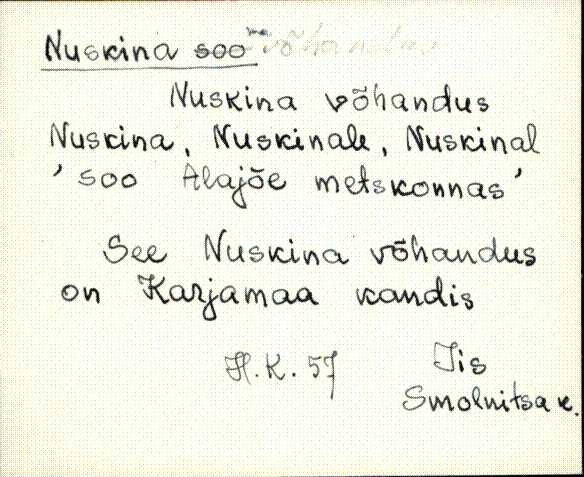 Nuskina soo võhandus
Nuskina võhandus
Nuskina, Nuskinale, Nuskinal
'soo Alajõe metskonnas'
See Nuskina võhandus
on Karjamaa kandis
H.K. 57 Iis
Smolnitsa k.